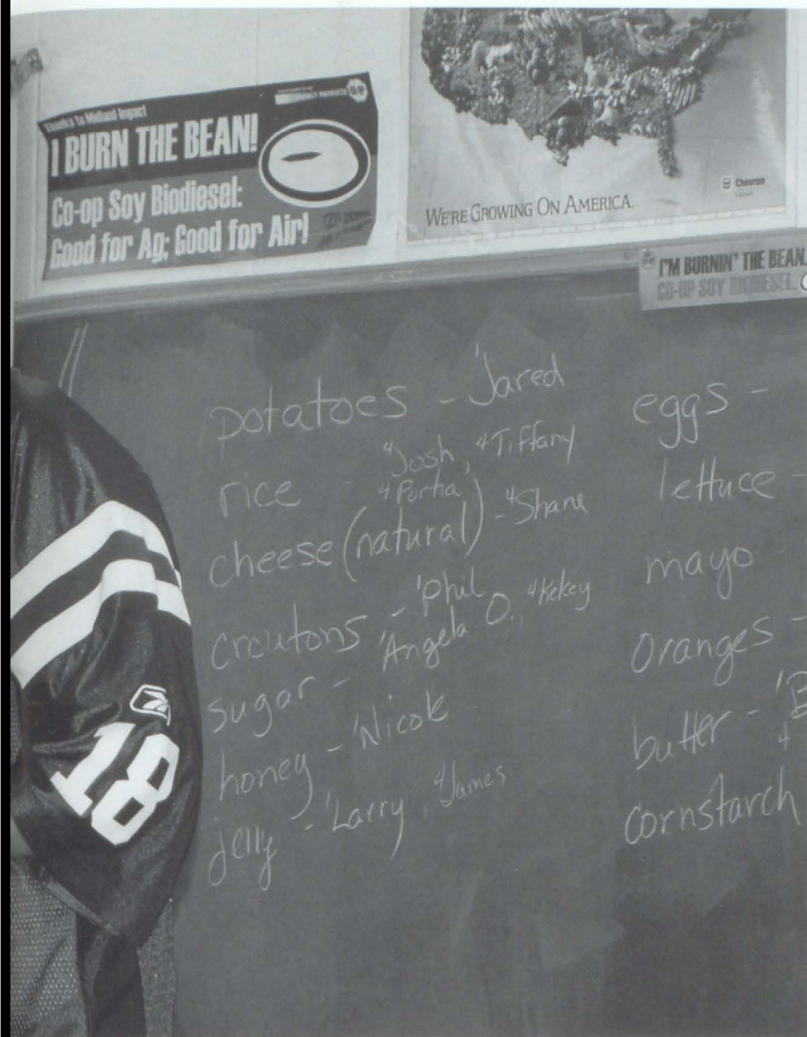 Thanks to Midland Impact
I BURN THE BEAN!
Co-op Soy Biodiesel:
Good for Ag; Good for Air!
WE'RE GROWING ON AMERICA.
Chevron
I'M BURNIN' THE BEAN.
CO-OP SOY BIODIESEL.
18
potatoes - 'Jared
rice - 4Josh, 4Tiffany
4Portia
cheese (natural) - 4Shane
croutons - 'Phil
sugar - 'Angela O., 4Kelcey
honey - 'Nicole
jelly - 'Larry, 4James
eggs -
lettuce -
mayo
oranges -
butter - 'B
4
cornstarch